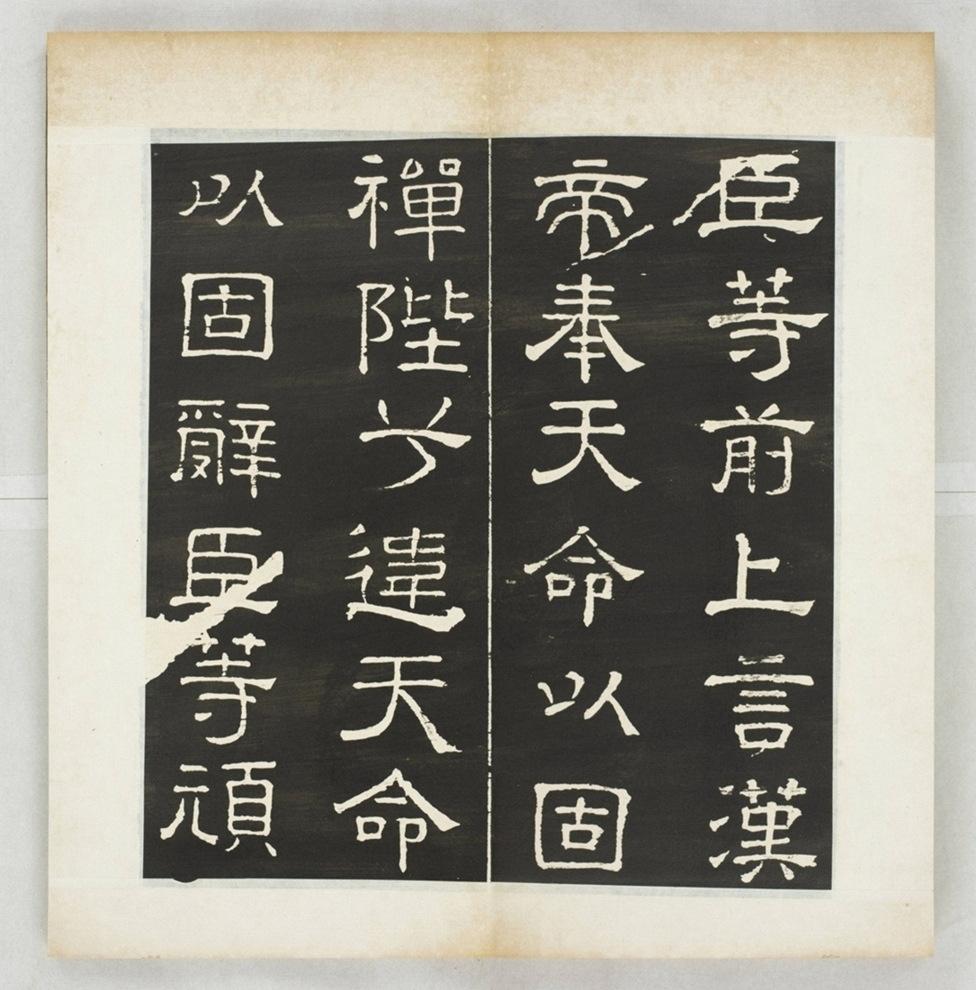 臣等前上言漢
帝奉天命以固
禪陛兮違天命
以固辭臣等頑